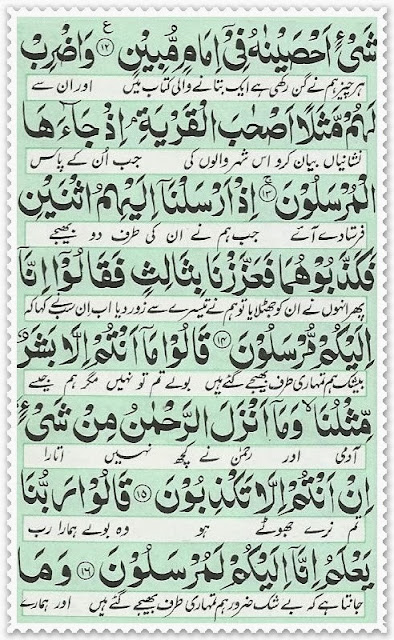 شَیْءٍ اَحْصَیْنٰهُ فِیْۤ اِمَامٍ مُّبِیْنٍ ۱۲ ع وَاضْرِبْ
ہر چیز ہم نے گن رکھی ہے ایک بتانے والی کتاب میں اور ان سے
لَهُمْ مَّثَلًا اَصْحٰبَ الْقَرْیَةِ ۘ اِذْ جَآءَهَا
نشانیاں بیان کرو اس شہر والوں کی جب اُن کے پاس
الْمُرْسَلُوْنَ ۱۳ ج اِذْ اَرْسَلْنَاۤ اِلَیْهِمُ اثْنَیْنِ
فرستادے آئے جب ہم نے ان کی طرف دو بھیجے
فَكَذَّبُوْهُمَا فَعَزَّزْنَا بِثَالِثٍ فَقَالُوْۤا اِنَّاۤ
پھر انہوں نے ان کو جھٹلایا تو ہم نے تیسرے سے زور دیا اب ان سب نے کہا کہ
اِلَیْكُمْ مُّرْسَلُوْنَ ۱۴ قَالُوْا مَاۤ اَنْتُمْ اِلَّا بَشَرٌ
بیشک ہم تمہاری طرف بھیجے گئے ہیں بولے تم تو نہیں مگر ہم جیسے
مِّثْلُنَا ۙ وَمَاۤ اَنْزَلَ الرَّحْمٰنُ مِنْ شَیْءٍ
آدمی اور رحمٰن نے کچھ نہیں اتارا
اِنْ اَنْتُمْ اِلَّا تَكْذِبُوْنَ ۱۵ قَالُوْا رَبُّنَا
تم نرے جھوٹے ہو وہ بولے ہمارا رب
یَعْلَمُ اِنَّاۤ اِلَیْكُمْ لَمُرْسَلُوْنَ ۱۶ وَمَا
جانتا ہے کہ بے شک ضرور ہم تمہاری طرف بھیجے گئے ہیں اور ہمارے